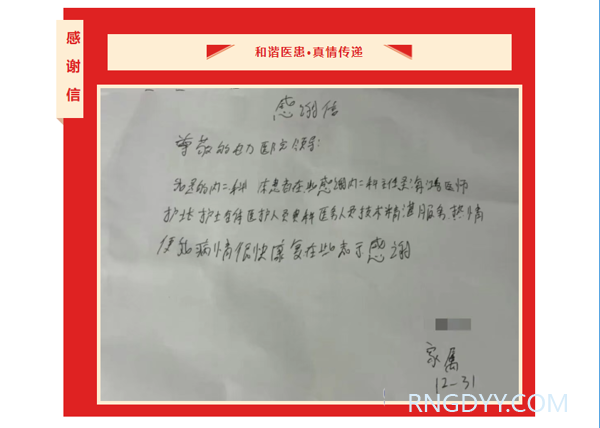 感谢信
和谐医患•真情传递
感谢信
尊敬的电力医院领导:
我是的内二科 本患者在此感谢内二科主任吴海鸿医师
护长 护士全体医护人员 医务人员技术精湛服务热情
使我病情很快康复在此表示感谢
家属
12-31
RNGDYY.COM